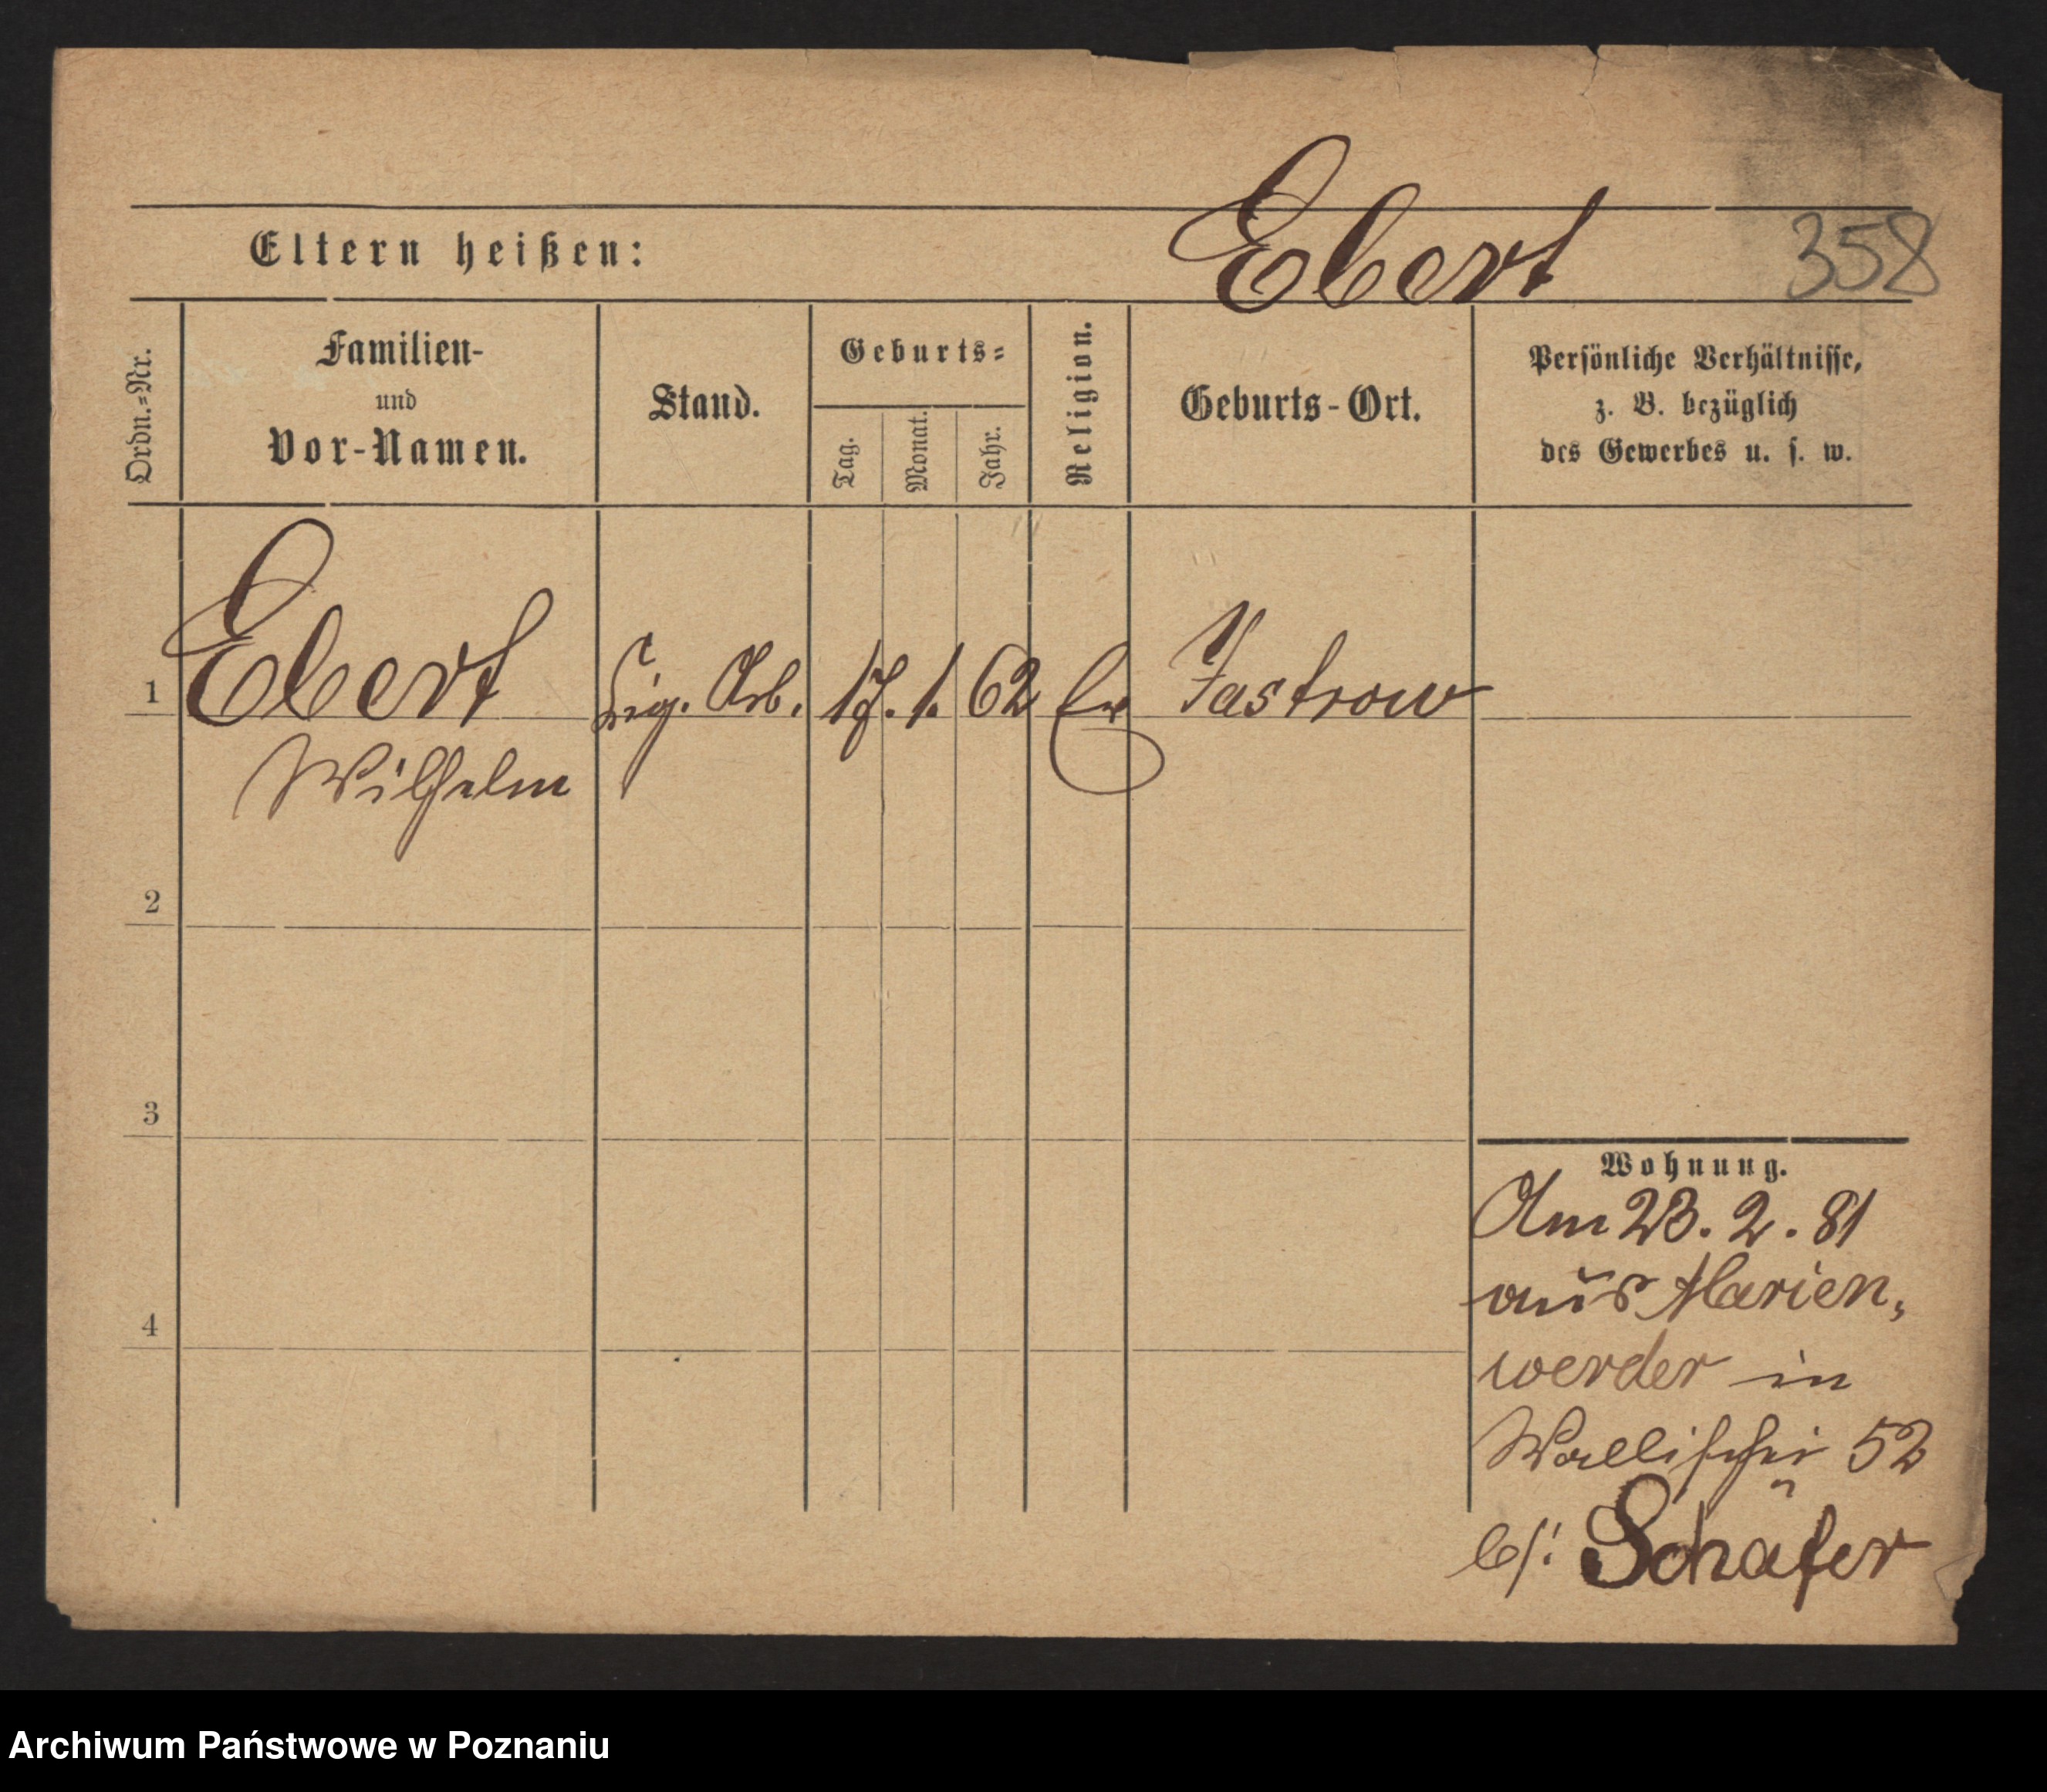 Ebert
358
Eltern heißen:
Ordn.=Nr.
Familien-
und
Vor-Namen.
Stand.
Geburts=
Tag.
Monat.
Jahr.
Religion.
Geburts-Ort.
Persönliche Verhältnisse,
z. B. bezüglich
des Gewerbes u. s. w.
1
Ebert
Wilhelm
Zig. Arb.
17. 1. 62
Ev
Jastrow
2
3
4
Wohnung.
Am 23. 2. 81
aus Marien,
werder in
Wallischei 52
b/: Schäfer
Archiwum Państwowe w Poznaniu